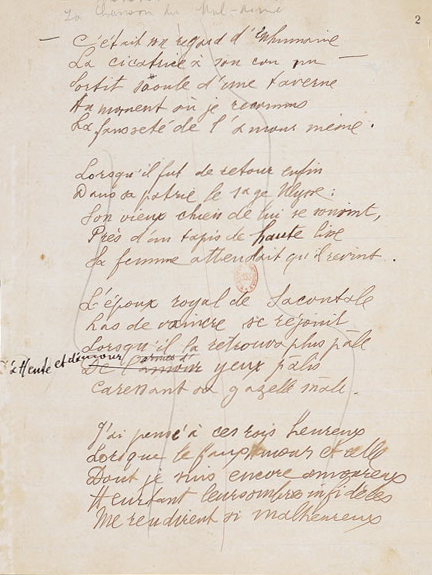 La Chanson du Mal-aimé
2
— C'était un regard d'inhumaine
La cicatrice à son cou nu —
Sortit saoule d'une taverne
Au moment où je reconnus
La fausseté de l'amour même.
Lorsqu'il fut de retour enfin
Dans sa patrie le sage Ulysse :
Son vieux chien de lui se souvint,
Près d'un tapis de haute lice
Sa femme attendait qu'il revint.
L'époux royal de Sacontale
Las de vaincre se réjouit
Lorsqu'il la retrouva plus pâle
d'attente et d'amour yeux pâlis
Caressant sa gazelle mâle.
J'ai pensé à ces rois heureux
Lorsque le faux amour et celle
Dont je suis encore amoureux
Heurtant leurs ombres infidèles
Me rendirent si malheureux